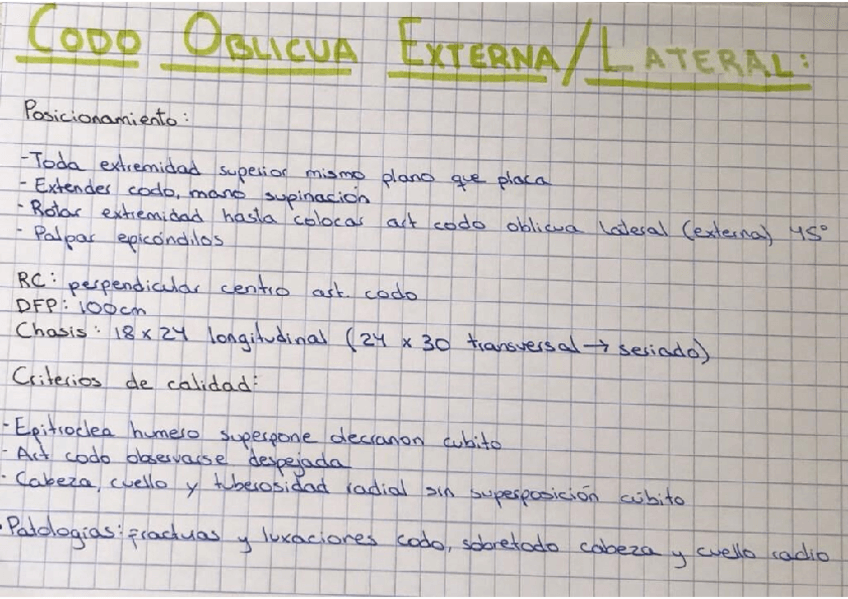 CODO OBLICUA EXTERNA/LATERAL:
Posicionamiento:
-Toda extremidad superior mismo plano que placa
- Extender codo, mano supinación
- Rotar extremidad hasta colocar art codo oblicua lateral (externa) 45°
- Palpar epicóndilos
RC: perpendicular centro art. codo
DFP: 100cm
Chasis: 18 x 24 longitudinal (24 x 30 transversal → seriado)
Criterios de calidad:
- Epitroclea humero superpone olecranon cubito
- Art codo observarse despejada
- Cabeza, cuello y tuberosidad radial sin superposición cúbito
• Patologías: fractuas y luxaciones codo, sobretodo cabeza y cuello radio